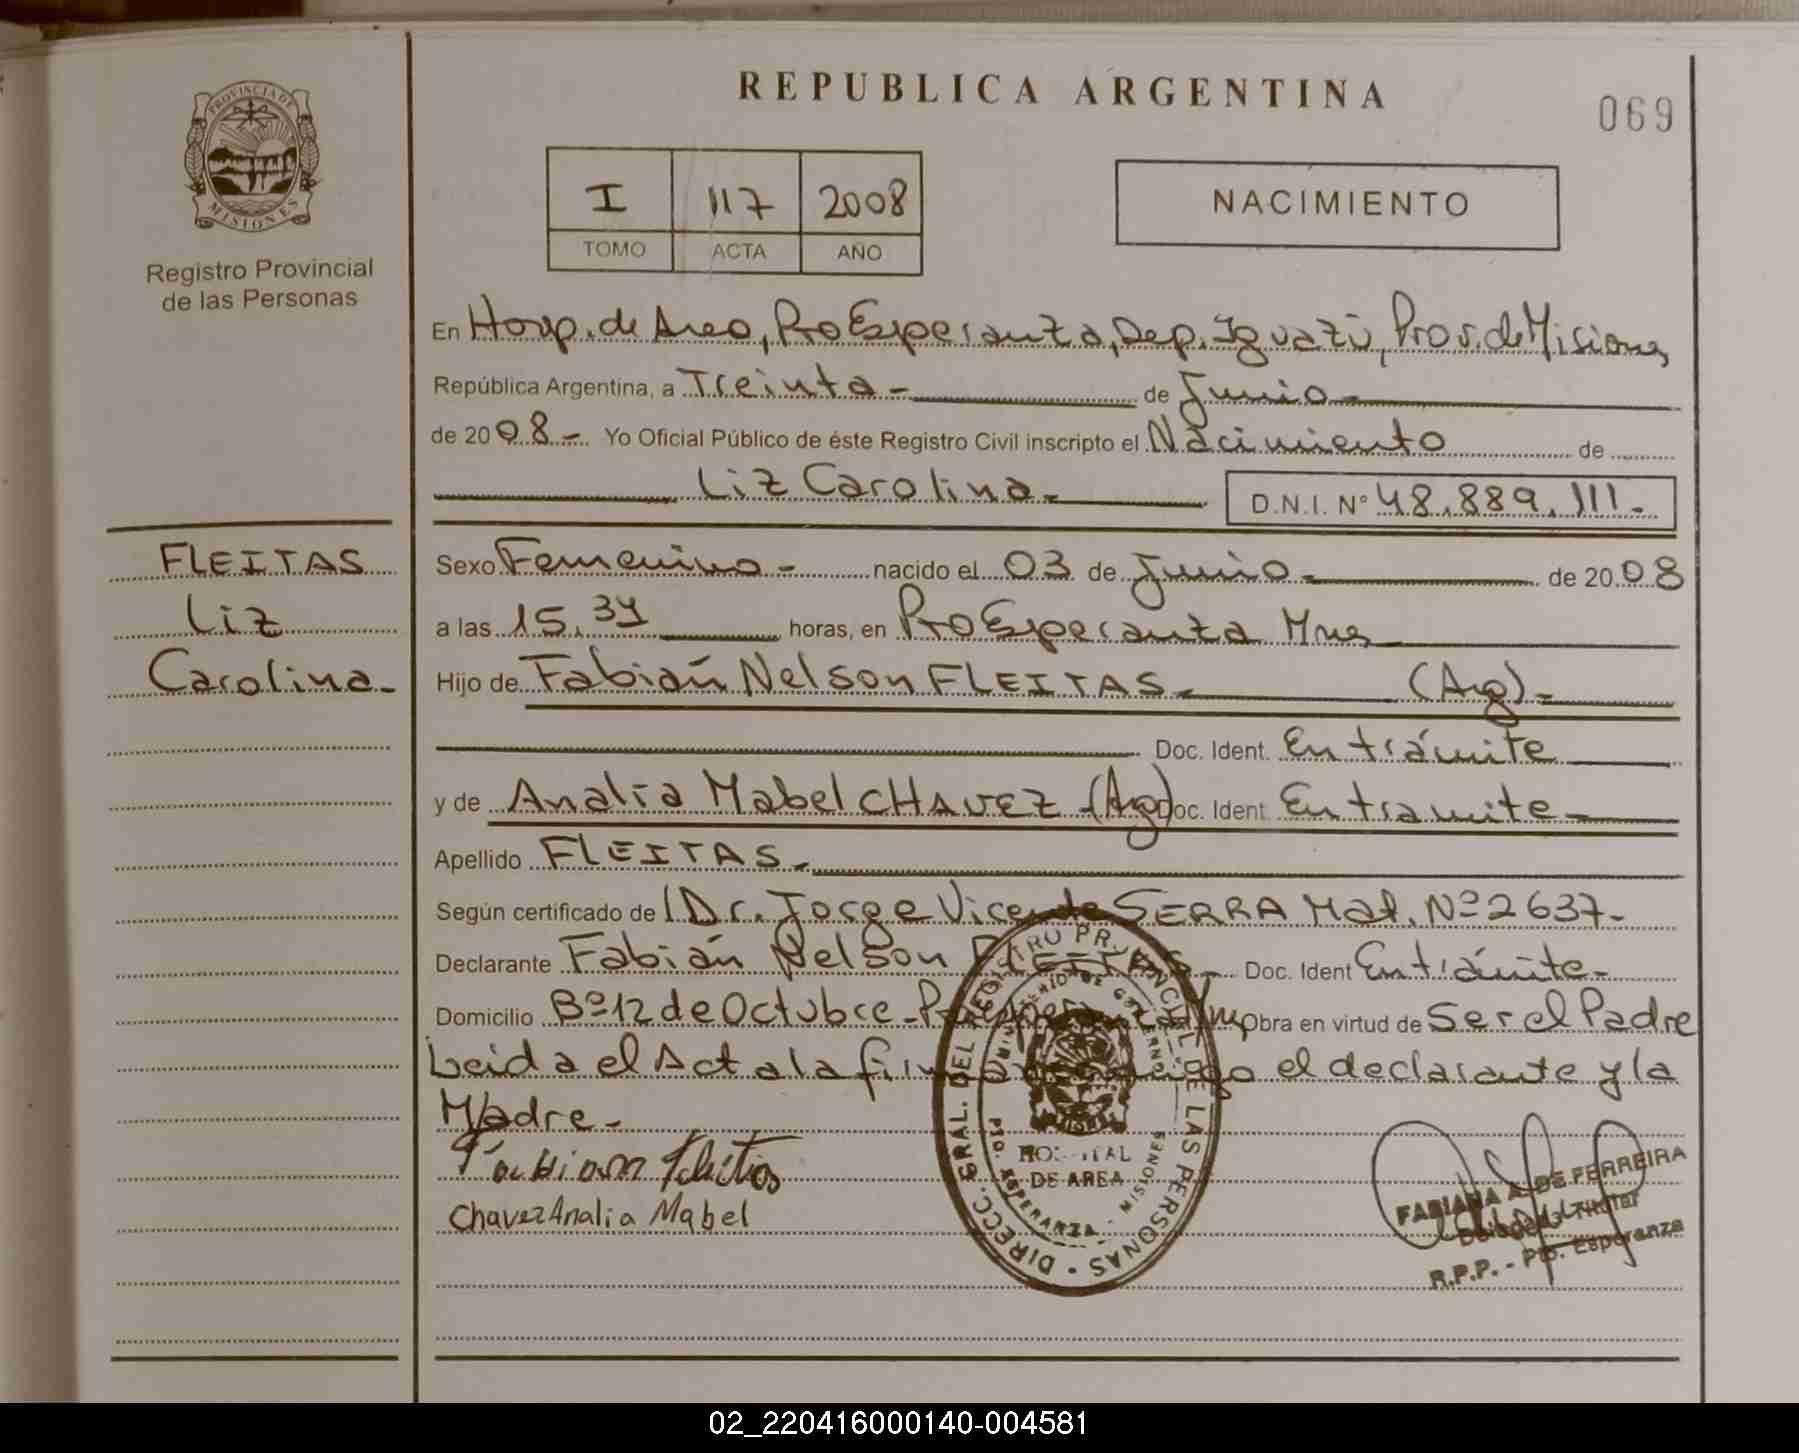 REPUBLICA ARGENTINA
069
PROVINCIA DE
MISIONES
Registro Provincial
de las Personas
I 117 2008
TOMO ACTA AÑO
NACIMIENTO
En Hosp. de Area, Pto Esperanza, Dep. Iguazú, Prov. de Misiones
República Argentina, a Treinta - de Junio -
de 2008 - Yo Oficial Público de éste Registro Civil inscripto el Nacimiento de
Liz Carolina - D.N.I. Nº 48.889.111 -
FLEITAS
Liz
Carolina -
Sexo Femenino - nacido el 03 de Junio - de 2008
a las 15.34 horas, en Pto Esperanza Mnes
Hijo de Fabián Nelson FLEITAS - (Arg) -
Doc. Ident. En trámite
y de Analia Mabel CHAVEZ (Arg) Doc. Ident. En tramite -
Apellido FLEITAS -
Según certificado de Dr. Jorge Vicente SERRA Mat. Nº 2637 -
Declarante Fabián Nelson FLEITAS - Doc. Ident En trámite -
Domicilio Bº 12 de Octubre - Pto Esperanza Obra en virtud de Ser el Padre
Leida el Acta la firman conmigo el declarante y la
Madre -
Fabian Fleitas
Chavez Analia Mabel
DIRECC. GRAL. DEL REGISTRO PROVINCIAL DE LAS PERSONAS
MINISTERIO DE GOBIERNO
HOSPITAL
DE AREA
PTO. ESPERANZA - MISIONES
FABIANA A. DE FERREIRA
Delegada Titular
R.P.P. - Pto. Esperanza
02_220416000140-004581